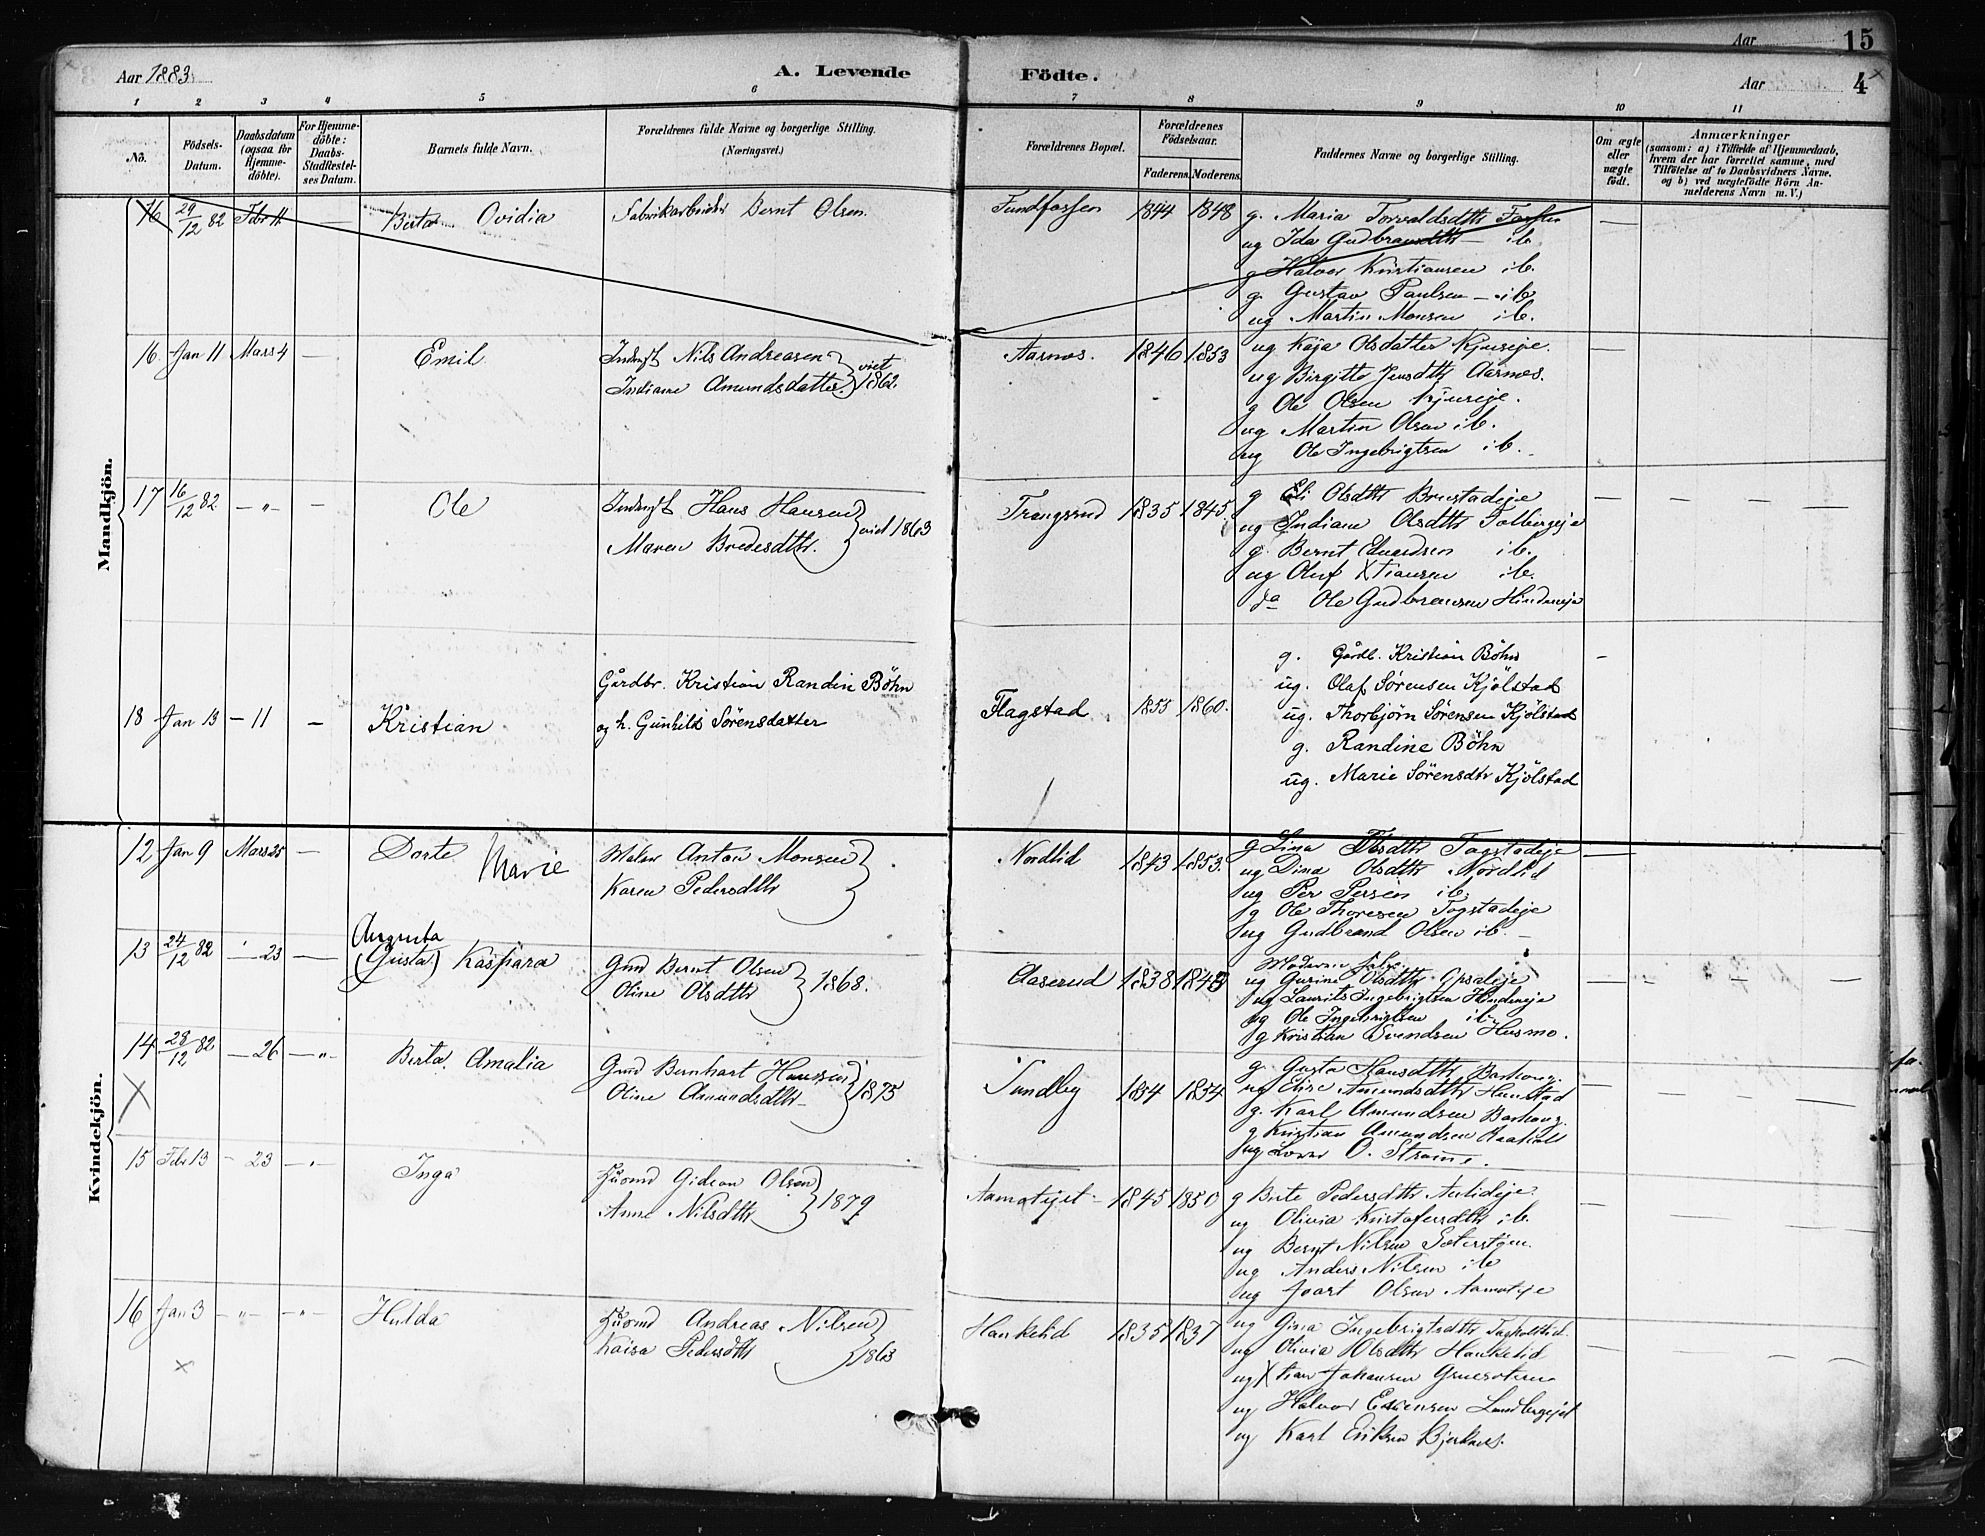 Aar 1883.
A. Levende
Födte.
Aar 15
Aar 4
1 2 3 4 5 6 7 8 9 10 11
No.
Födsels-Datum.
Daabsdatum (ogsaa for Hjemme-döbte).
For Hjemme-döbte: Daabs-Stadfæstel-ses Datum.
Barnets fulde Navn.
Forældrenes fulde Navne og borgerlige Stilling.
(Næringsvei.)
Forældrenes Bopæl.
Forældrenes Födselsaar.
Faderens. Moderens.
Faddernes Navne og borgerlige Stilling.
Om ægte eller uægte födt.
Anmærkninger
(saasom: a) i Tilfælde af Hjemmedaab, hvem der har forrettet samme, med Tilföielse af to Daabsvidners Navne, og b) ved uægtefödte Börn An-melderens Navn m. V.)
Mandkjön.
16 29/12 82 Febr 11 Berta Ovidia Fabrikarbeider Bernt Olsen Fundfossen 1844 1848 g. Maria Torvaldsdttr Fossen
ug Ida Gudbrandsdttr - ib
g Halvor Kristiansen ib.
g. Gustav Paulsen - ib
ug Martin Monsen ib.
16. Jan 11 Mars 4 — Emil Indergst Nils Andreasen
Indiane Amundsdatter viet 1862. Aarnes. 1846 1853 ug Kaja Olsdatter Kjuseje.
ug Birgitte Jensdttr Aarnes.
g Ole Olsen Kjuseje.
ug Martin Olsen ib.
ug Ole Ingebrigtsen ib.
17 16/12 82 — " — — Ole Indergst Hans Hansen
Maren Bredesdttr. viet 1863 Trangsrud 1835 1845. g Eli Olsdttr Brustadeje
ug Indiane Olsdttr Tolbergeje
g. Bernt Edvardsen ib.
ug Oluf Xtiansen ib.
ja Ole Gudbrandsen Hindeneje
18 Jan 13 — 11 — Kristian Gårdbr. Kristian Randin Böhn
og h. Gunhild Sörensdatter Flagstad 1855 1860. g. Gårdb. Kristian Böhn
ug. Olaf Sörensen Kjölstad
ug. Thorbjörn Sörensen Kjölstad
g. Randine Böhn
ug. Marie Sörensdtr Kjölstad
Kvindekjön.
12 Jan 9 Mars 25 — Dorte Marie Maler Anton Monsen
Karen Pedersdttr Nordlid 1843 1853. g Lina Olsdttr Togstadeje
ug Dina Olsdttr Nordlid
ug Per Persen ib.
g Ole Thoresen Togstadeje
ug Gudbrand Olsen ib.
13 24/12 82 " 23 — Augusta
(Gusta) Kaspara Gmd Bernt Olsen
Oline Olsdttr 1868. Aaserud 1838 1843 Moderen selv.
ug Gurine Olsdttr Opsaleje
ug Laurits Ingebrigtsen Hindeneje
ug Ole Ingebrigtsen ib
g Kristian Svendsen Husmo.
14 28/12 82 — 26 — " — Berta Amalia Gmd Bernhart Hansen
Oline Amundsdttr 1875 Sundby 1854 1854 g. Gusta Hansdttr Barhaug.
ug Elise Amundsdttr Hunstad
g. Karl Amundsen Barhaug.
g Kristian Amundsen
ug O. Strøm.
15 Febr 13 — 23 — " — Inga Gideon Olsen
Anne Nilsdttr 1879 Aamotejet 1845 1850 g Berte Pedersdttr
ug Olivia Kristofersdttr ib.
ug Bernt Nilsen
ug Anders Nilsen ib
ug Olsen Aamoteje
16 Jan 3 — " — — " — Hulda Andreas Nilsen
Kaisa Pedersdttr 1863 Hankelid 1835 1837 ug Gina Ingebrigtsdttr
ug Olivia Olsdttr Hankelid
ug Xtian Johansen
ug Halvor Lundbergejet
ug Karl Eriksen Bjerknes.